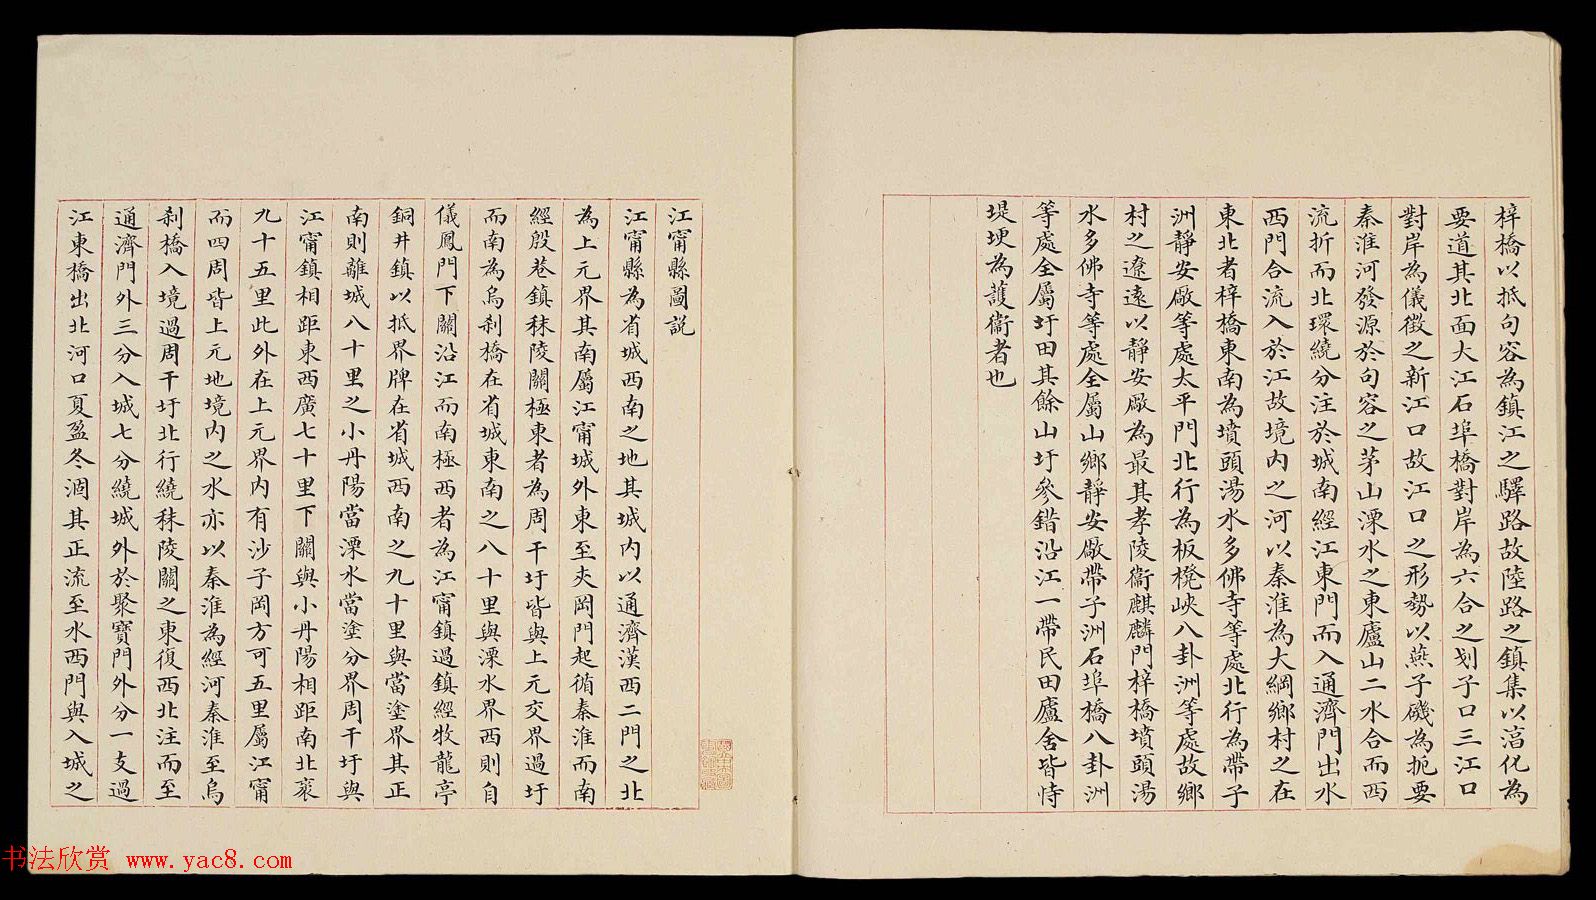 梓橋以抵句容為鎮江之驛路故陸路之鎮集以湻化為
要道其北面大江石埠橋對岸為六合之划子口三江口
對岸為儀徵之新江口故江口之形勢以燕子磯為扼要
秦淮河發源於句容之茅山溧水之東廬山二水合而西
流折而北環繞分注於城南經江東門而入通濟門出水
西門合流入於江故境內之河以秦淮為大綱鄉村之在
東北者梓橋東南為墳頭湯水多佛寺等處北行為帶子
洲靜安厰等處太平門北行為板櫈峽八卦洲等處故鄉
村之遼遠以靜安厰為最其孝陵衞麒麟門梓橋墳頭湯
水多佛寺等處全屬山鄉靜安厰帶子洲石埠橋八卦洲
等處全屬圩田其餘山圩參錯沿江一帶民田廬舍皆恃
堤埂為護衞者也
江甯縣圖説
江甯縣為省城西南之地其城內以通濟漢西二門之北
為上元界其南屬江甯城外東至夾岡門起循秦淮而南
經殷巷鎮秣陵關極東者為周干圩皆與上元交界過圩
而南為烏刹橋在省城東南之八十里與溧水界西則自
儀鳳門下關沿江而南極西者為江甯鎮過鎮經牧龍亭
銅井鎮以抵界牌在省城西南之九十里與當塗界其正
南則離城八十里之小丹陽當溧水當塗分界周干圩與
江甯鎮相距東西廣七十里下關與小丹陽相距南北袤
九十五里此外在上元界內有沙子岡方可五里屬江甯
而四周皆上元地境內之水亦以秦淮為經河秦淮至烏
刹橋入境過周干圩北行繞秣陵關之東復西北注而至
通濟門外三分入城七分繞城外於聚寶門外分一支過
江東橋出北河口夏盈冬涸其正流至水西門與入城之
书法欣赏 www.yac8.com